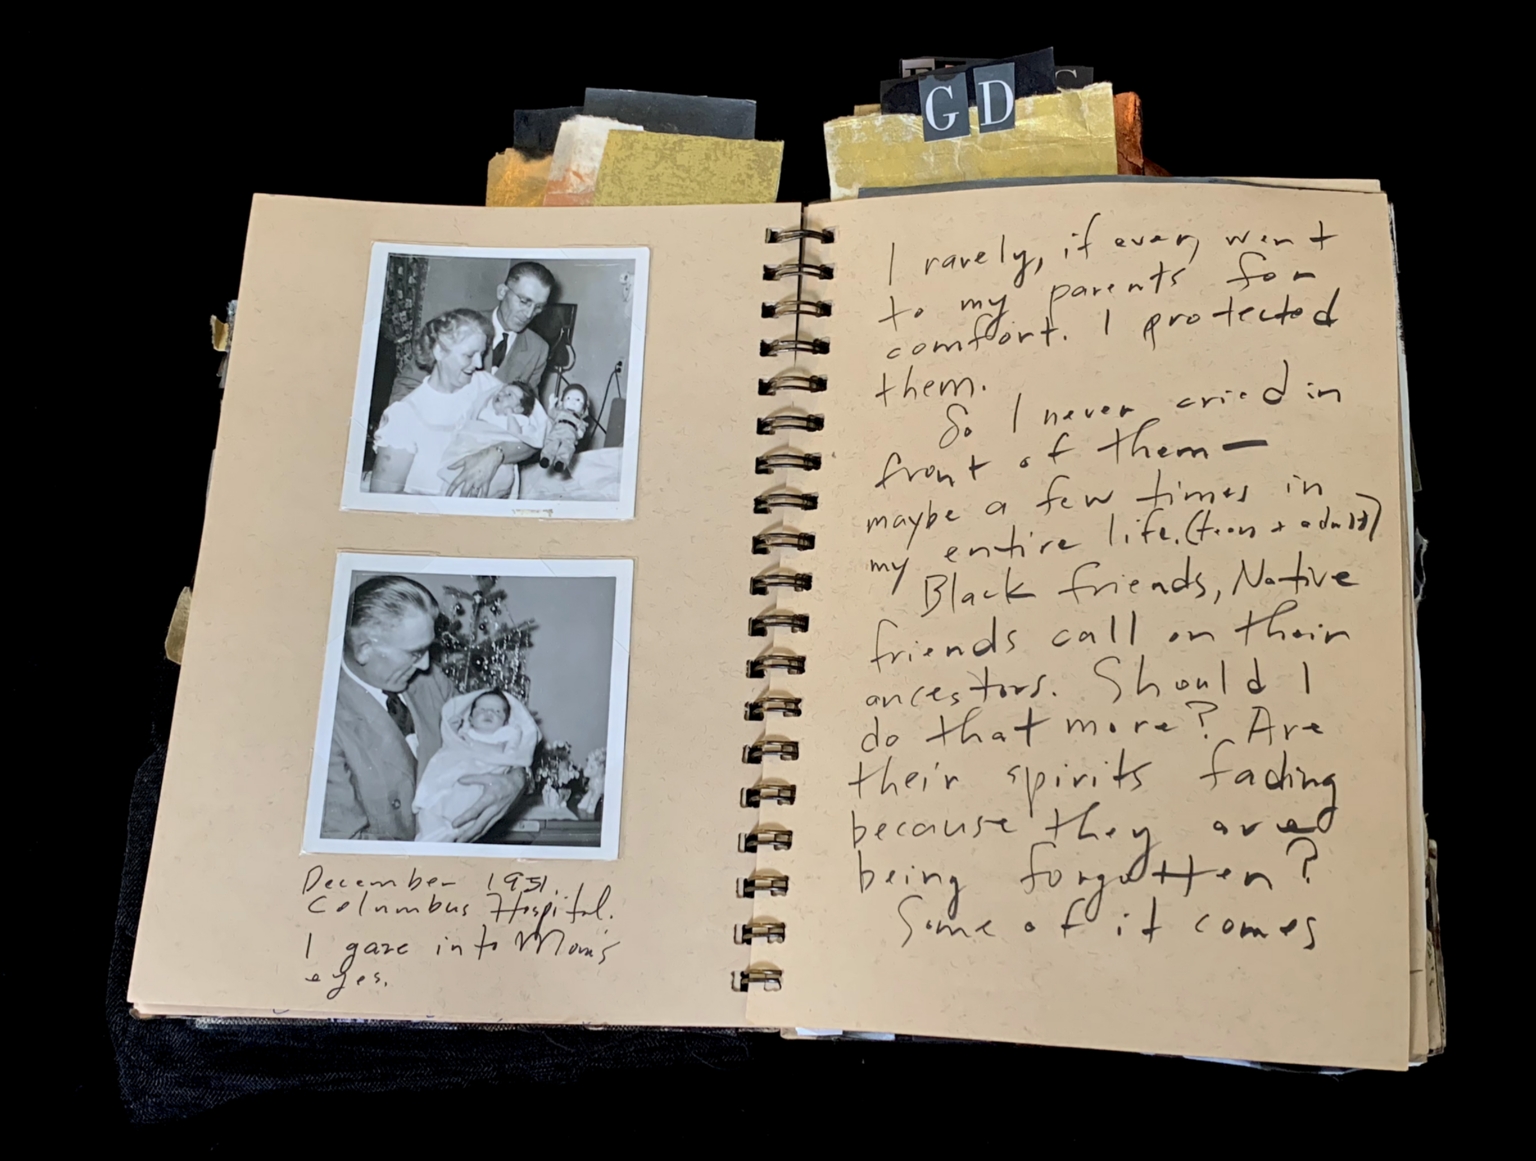 G D
December 1951.
Columbus Hospital.
I gaze into Mom's
eyes.
I rarely, if ever, went
to my parents for
comfort. I protected
them.
So I never cried in
front of them—
maybe a few times in
my entire life. (teen + adult)
Black friends, Native
friends call on their
ancestors. Should I
do that more? Are
their spirits fading
because they are
being forgotten?
Some of it comes